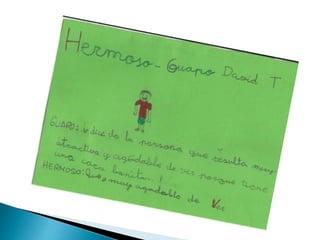 Hermoso - Guapo David T
GUAPO: Se dice de la persona que resulta muy
atractiva y agradable de ver porque tiene
una cara bonita.
HERMOSO: Que es muy agradable de Ver